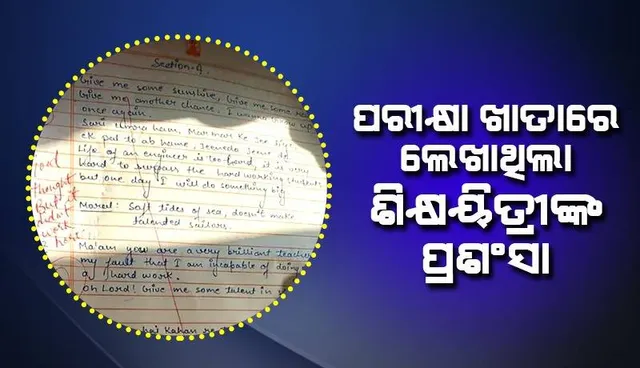 Section-A.
Give me some sunshine, Give me some
Give me another chance I wanna grow up
once again.
Sari Umra ham, Mar mar ke jee
ek pal to ab hame, jeene do jeene do
Life of an engineer is too hard, it is very
hard to surpass the hard working students
but one day I will do something big
Moral: Salt tides of sea, doesn't make
talented sailors.
Ma'am you are a very brilliant teacher
my fault that I am incapable of doing
hard work.
Oh Lord! Give me some talent in
thought
but it
didn't
work
here
ପରୀକ୍ଷା ଖାତାରେ
ଲେଖାଥିଲା
ଶିକ୍ଷୟିତ୍ରୀଙ୍କ
ପ୍ରଶଂସା